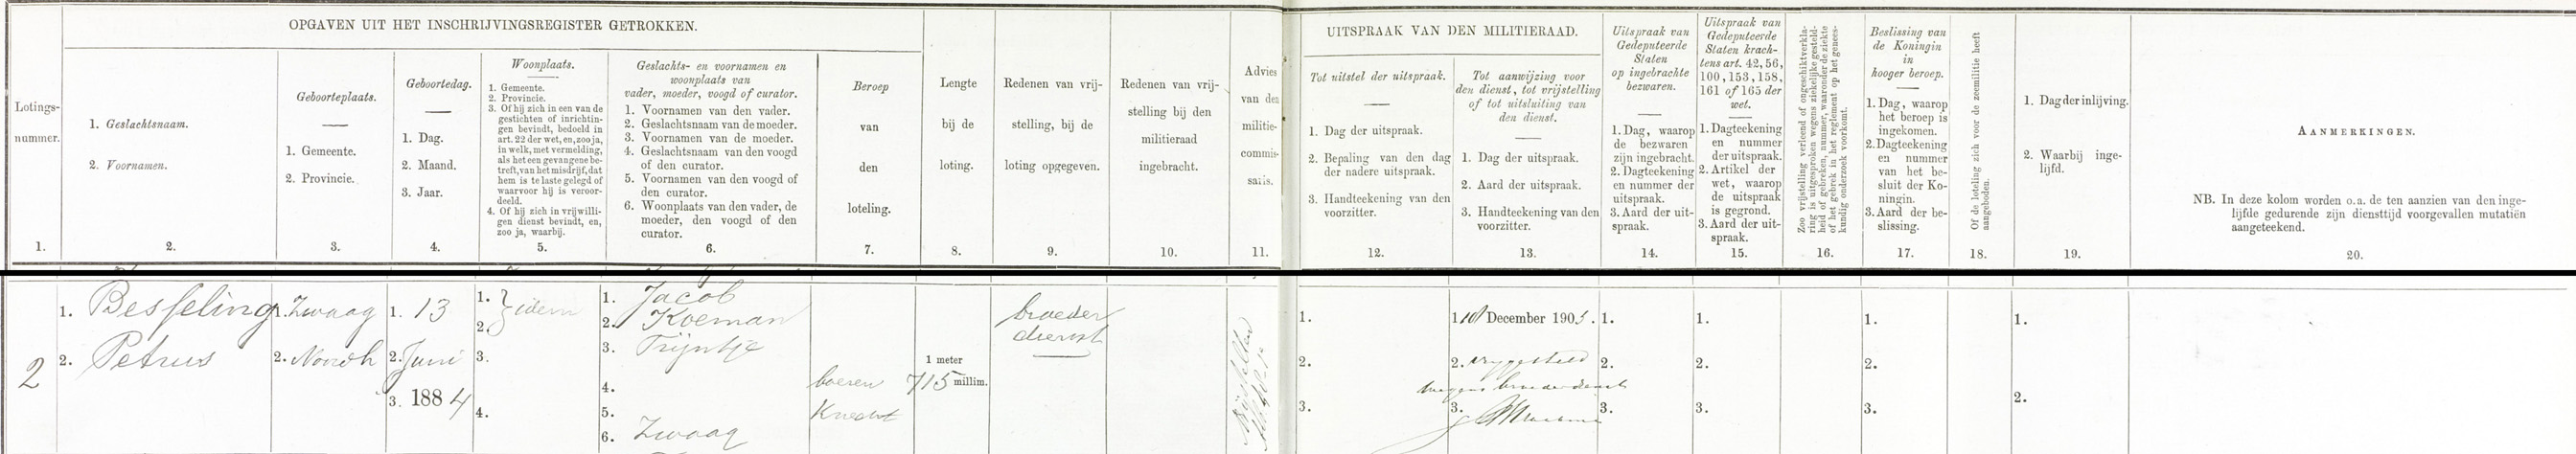 OPGAVEN UIT HET INSCHRIJVINGSREGISTER GETROKKEN.
Lotings-
nummer.
1.
1. Geslachtsnaam.
2. Voornamen.
2.
Geboorteplaats.
1. Gemeente.
2. Provincie.
3.
Geboortedag.
1. Dag.
2. Maand.
3. Jaar.
4.
Woonplaats.
1. Gemeente.
2. Provincie.
3. Of hij zich in een van de
gestichten of inrichtin-
gen bevindt, bedoeld in
art. 22 der wet, en, zoo ja,
in welk, met vermelding,
als het een gevangene be-
treft, van het misdrijf, dat
hem is te laste gelegd of
waarvoor hij is veroor-
deeld.
4. Of hij zich in vrijwilli-
gen dienst bevindt, en,
zoo ja, waarbij.
5.
Geslachts- en voornamen en
woonplaats van
vader, moeder, voogd of curator.
1. Voornamen van den vader.
2. Geslachtsnaam van de moeder.
3. Voornamen van de moeder.
4. Geslachtsnaam van den voogd
of den curator.
5. Voornamen van den voogd of
den curator.
6. Woonplaats van den vader, de
moeder, den voogd of den
curator.
6.
Beroep
van
den
loteling.
7.
Lengte
bij de
loting.
8.
Redenen van vrij-
stelling, bij de
loting opgegeven.
9.
Redenen van vrij-
stelling bij den
militieraad
ingebracht.
10.
Advies
van den
militie-
commis-
saris.
11.
UITSPRAAK VAN DEN MILITIERAAD.
Tot uitstel der uitspraak.
1. Dag der uitspraak.
2. Bepaling van den dag
der nadere uitspraak.
3. Handteekening van den
voorzitter.
12.
Tot aanwijzing voor
den dienst, tot vrijstelling
of tot uitsluiting van
den dienst.
1. Dag der uitspraak.
2. Aard der uitspraak.
3. Handteekening van den
voorzitter.
13.
Uitspraak van
Gedeputeerde
Staten
op ingebrachte
bezwaren.
1. Dag, waarop
de bezwaren
zijn ingebracht.
2. Dagteekening
en nummer der
uitspraak.
3. Aard der uit-
spraak.
14.
Uitspraak van
Gedeputeerde
Staten krach-
tens art. 42, 56,
100, 153, 158,
161 of 165 der
wet.
1. Dagteekening
en nummer
der uitspraak.
2. Artikel der
wet, waarop
de uitspraak
is gegrond.
3. Aard der uit-
spraak.
15.
Zoo vrijstelling verleend of ongeschiktverkla-
ring is uitgesproken wegens ziekelijke gesteld-
heid of gebreken, nummer, waaronder de ziekte
of het gebrek in het reglement op het genees-
kundig onderzoek voorkomt.
16.
Beslissing van
de Koningin
in
hooger beroep.
1. Dag, waarop
het beroep is
ingekomen.
2. Dagteekening
en nummer
van het be-
sluit der Ko-
ningin.
3. Aard der be-
slissing.
17.
Of de loteling zich voor de zeemilitie heeft
aangeboden.
18.
1. Dag der inlijving.
2. Waarbij inge-
lijfd.
19.
AANMERKINGEN.
NB. In deze kolom worden o.a. de ten aanzien van den inge-
lijfde gedurende zijn diensttijd voorgevallen mutatiën
aangeteekend.
20.
2
1. Besseling
2. Petrus
1. Zwaag
2. Noordh
1. 13
2. Juni
3. 1884
1. idem
2.
3.
4.
1. Jacob
2. Koeman
3. Trijntje
4.
5.
6. Zwaag
boeren
Knecht
1 meter
715 millim.
broeder
dienst
1.
2.
3.
1. December 1903.
2. vrijgesteld
wegens broederdienst
3.
1.
2.
3.
1.
2.
3.
1.
2.
3.
1.
2.